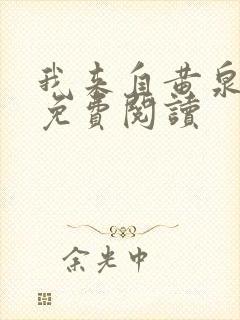 我来自黄泉
免費閱讀
余光中